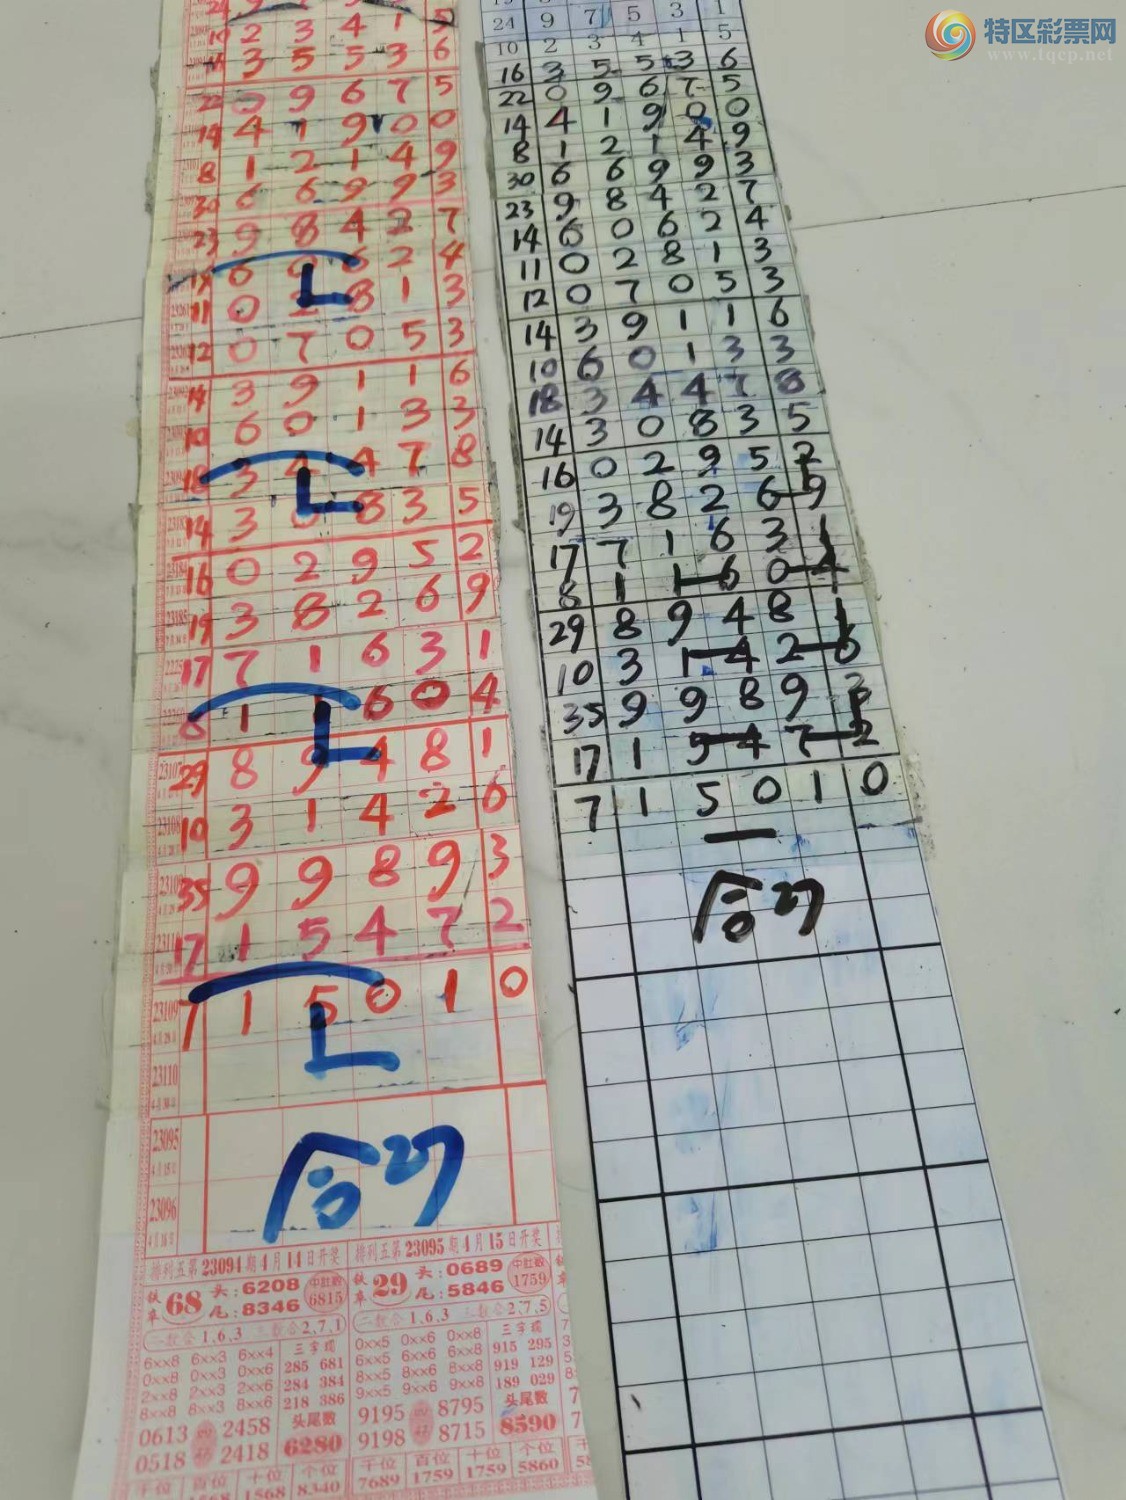 特区彩票网
www.tqcp.net
10 2 3 4 1 5
3 5 5 3 6
22 0 9 6 7 5
14 4 1 9 0 0
8 1 2 1 4 9
30 6 6 9 9 3
23 9 8 4 2 7
6 0 6 2 4
11 0 2 8 1 3
12 0 7 0 5 3
14 3 9 1 1 6
10 6 0 1 3 3
18 3 4 4 7 8
14 3 0 8 3 5
16 0 2 9 5 2
19 3 8 2 6 9
17 7 1 6 3 1
8 1 1 6 0 4
29 8 9 4 8 1
10 3 1 4 2 6
35 9 9 8 9 3
17 1 5 4 7 2
7 1 5 0 1 0
23107
23108
23109
23110
23095
23096
合27
排列五第23094期4月14日开奖
铁率 68 头:6208 尾:8346 中肚数 6815
二数合1,6,3 三数合2,7,1
6xx8 6xx3 6xx4
0xx8 0xx3 0xx6
2xx8 2xx3 2xx6
8xx8 8xx3 8xx6
三字现
285 681
284 384
218 386
0613 2458
0518 2418
头尾数
6280
千位 百位 十位 个位
1568 8340
排列五第23095期4月15日开奖
铁率 29 头:0689 尾:5846 中肚数 1759
二数合1,6,3 三数合2,7,5
0xx5 0xx6 0xx8
6xx5 6xx6 6xx8
8xx5 8xx6 8xx8
9xx5 9xx6 9xx8
三字现
915 295
919 129
189 029
9195 8795
9198 8715
头尾数
8590
千位 百位 十位 个位
7689 1759 1759 5860
24 9 7 5 3 1
10 2 3 4 1 5
16 3 5 5 3 6
22 0 9 6 7 5
14 4 1 9 0 0
8 1 2 1 4 9
30 6 6 9 9 3
23 9 8 4 2 7
14 6 0 6 2 4
11 0 2 8 1 3
12 0 7 0 5 3
14 3 9 1 1 6
10 6 0 1 3 3
18 3 4 4 7 8
14 3 0 8 3 5
16 0 2 9 5 2
19 3 8 2 6 9
17 7 1 6 3 1
8 1 1 6 0 4
29 8 9 4 8 1
10 3 1 4 2 6
35 9 9 8 9 3
17 1 5 4 7 2
7 1 5 0 1 0
合27